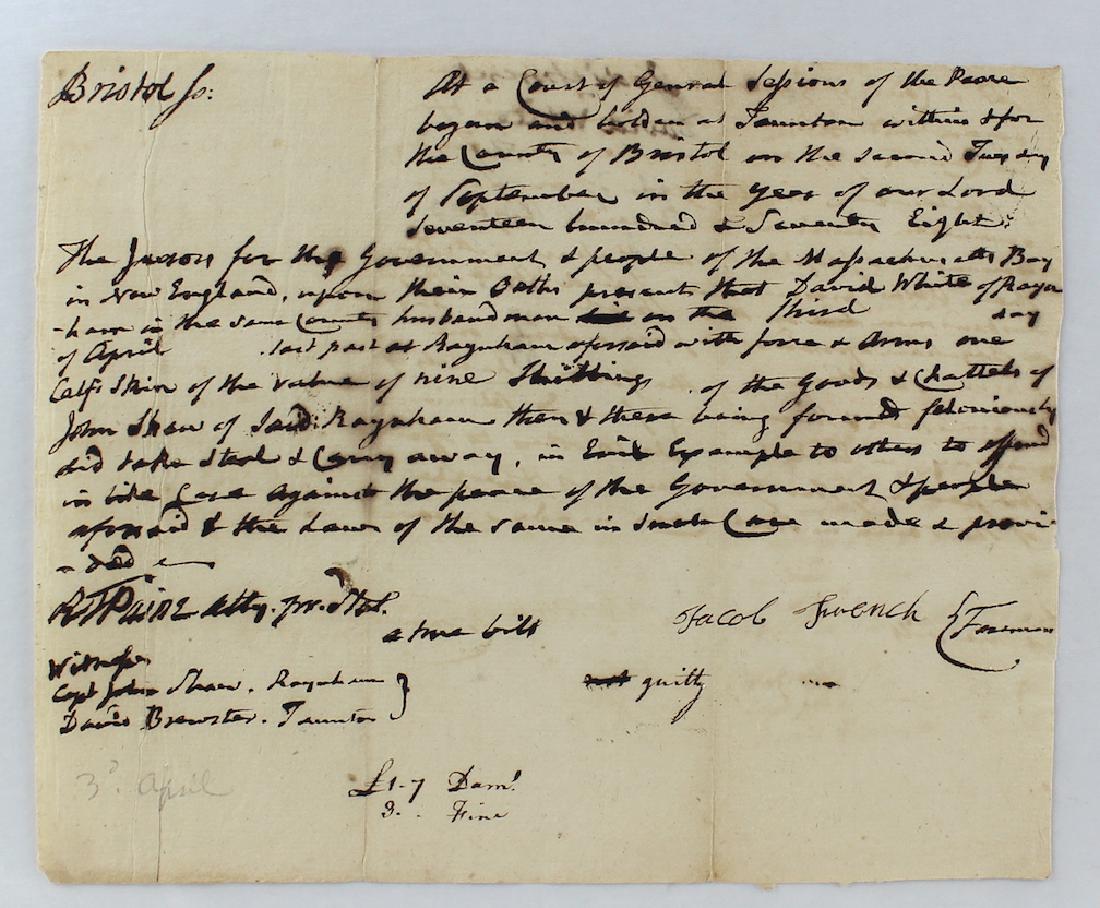 Bristol ss:
At a Court of General Sessions of the Peace
began and holden at Taunton within & for
the County of Bristol on the second Tuesday
of September in the year of our Lord
Seventeen hundred & Seventy Eight.
The Jurors for the Government & people of the Massachusetts Bay
in New England, upon their Oaths present that David White of Rayn
-ham in the same County husbandman on the third day
of April last past at Raynham aforsaid with force & Arms one
Calfs Skin of the value of nine Shillings of the Goods & Chattels of
John Shaw of Said Raynham then & there being found feloniously
did take Steal & Carry away, in Evil Example to others to offend
in like Case Against the peace of the Government & people
aforsaid & the Laws of the same in such Case made & provi
-ded
RTPaine Atty. pr. Stat.
a true bill
Jacob French Foreman
Witnesses
Capt John Shaw. Raynham
David Brewster. Taunton
not guilty
3d. April
£1-7 Dam.
3. Fine